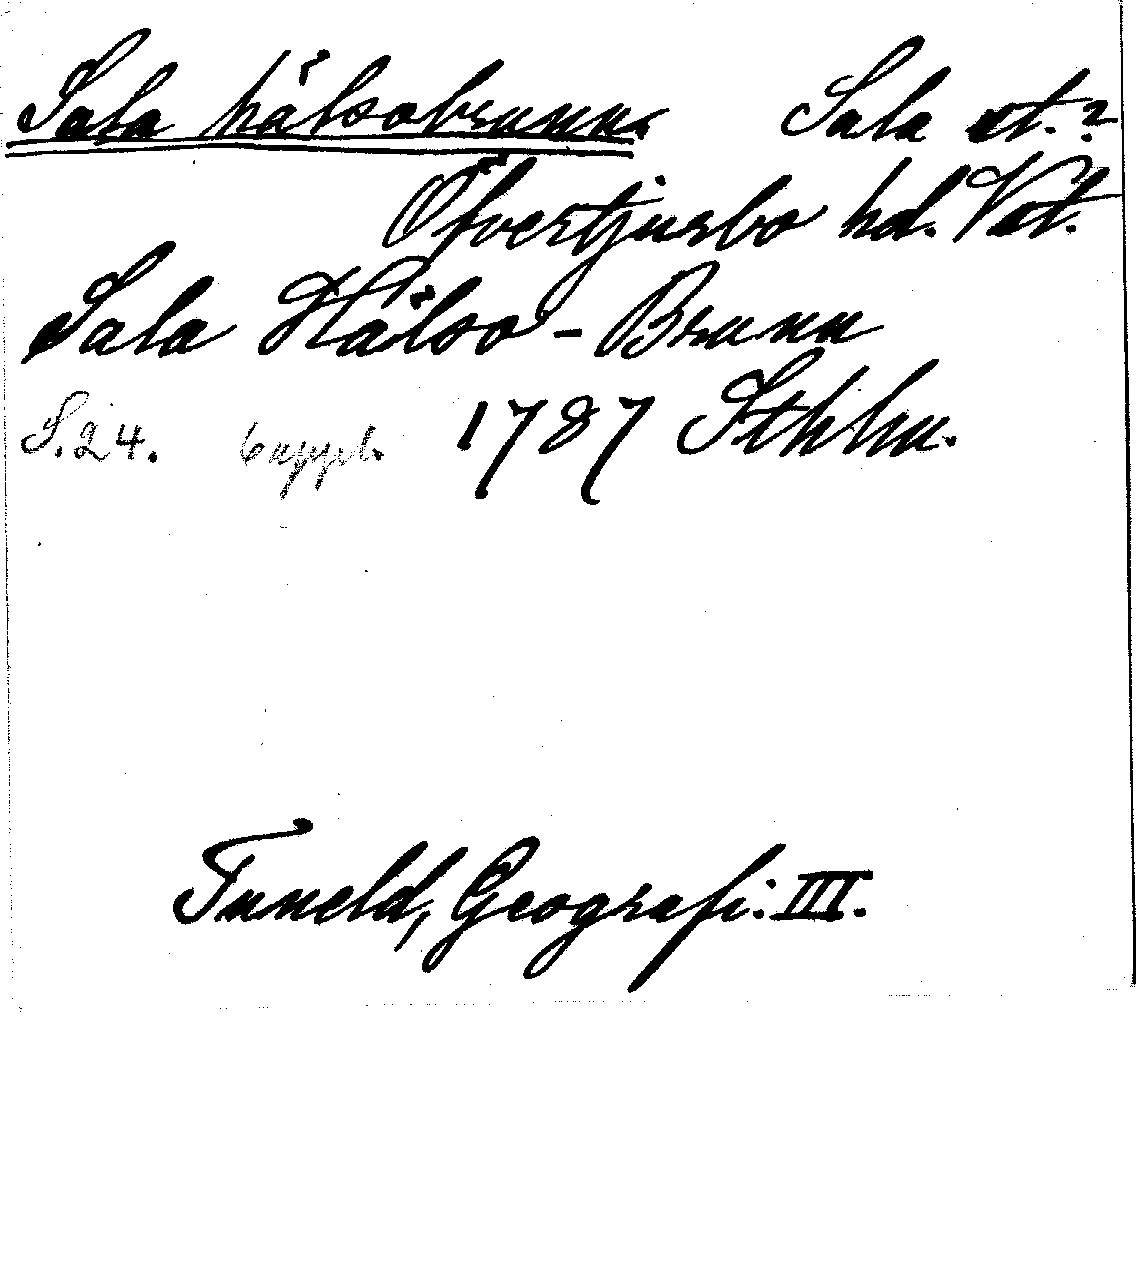 Sala hälsobrunn. Sala st.?
Öfvertjurbo hd. Vst.
Sala Hälso-Brunn
S. 24. 6 uppl. 1787 Sthlm.
Tuneld, Geografi. III.